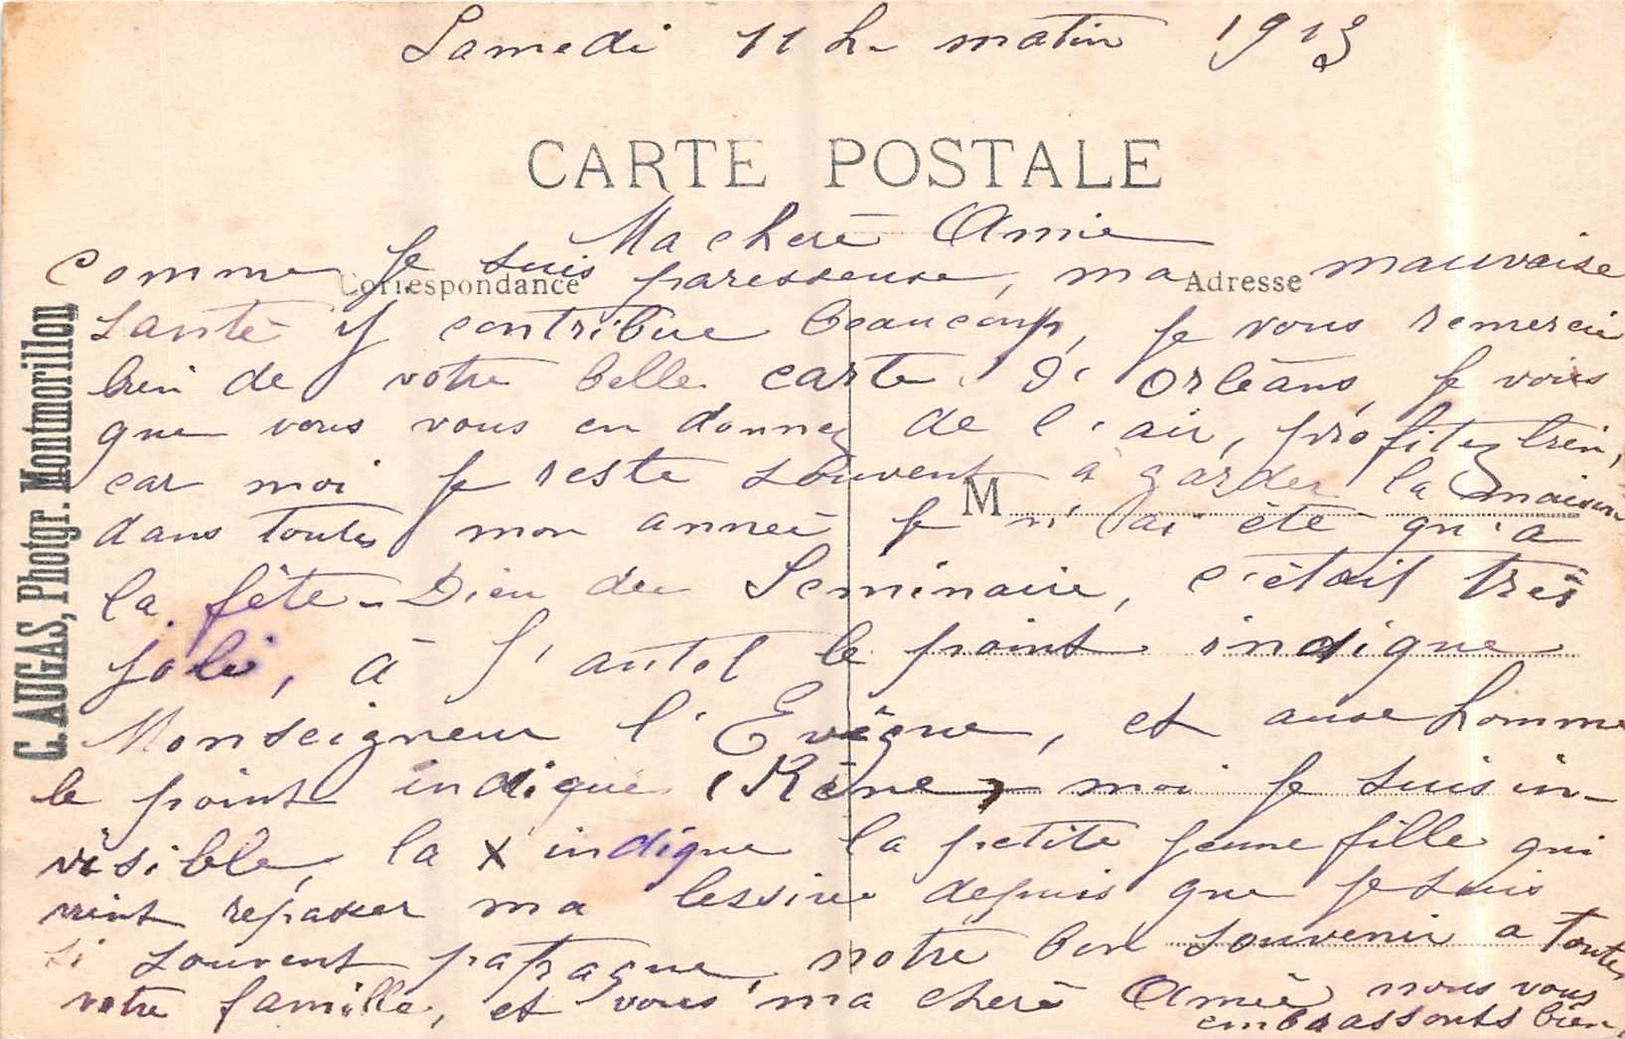 Samedi 11 h. matin 1913
CARTE POSTALE
Ma cherè Amie
Correspondance
Adresse
comme je suis paresseuse, ma mauvaise
santé y contribue beaucoup, je vous remercie
bien de votre belle carte d'Orléans, je vois
que vous vous en donnez de l'air, profitez bien,
car moi je reste souvent à garder la maison
M
dans toutes mon anneé je n'ai été qu'a
la fête-Dieu du Seminaire, c'était très
joli, à l'autel le point indique
Monseigneur l'Evêque, et homme
le point indique (Réné) moi je suis in-
visible, la x indique la petite jeune fille qui
vient repasser ma lessive depuis que je suis
si souvent patraque, notre bon souvenir a toute
votre famille, et vous ma cherè Amie nous vous
embrassonts bien,
C. AUGAS, Photgr. Montmorillon